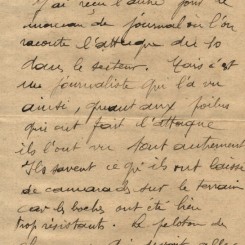 J'ai reçu l'autre jour le
morceau de journal où l'on
raconte l'attaque du 10
dans le secteur. Mais c'est
une journaliste qui l'a vu
ainsi, quant aux poilus
qui ont fait l'attaque
ils l'ont vu tout autrement
Ils savent ce qu'ils ont laissé
de camarades sur le terrain
car les boches ont été bien
trop résistants. Le peloton de
qui devait aller